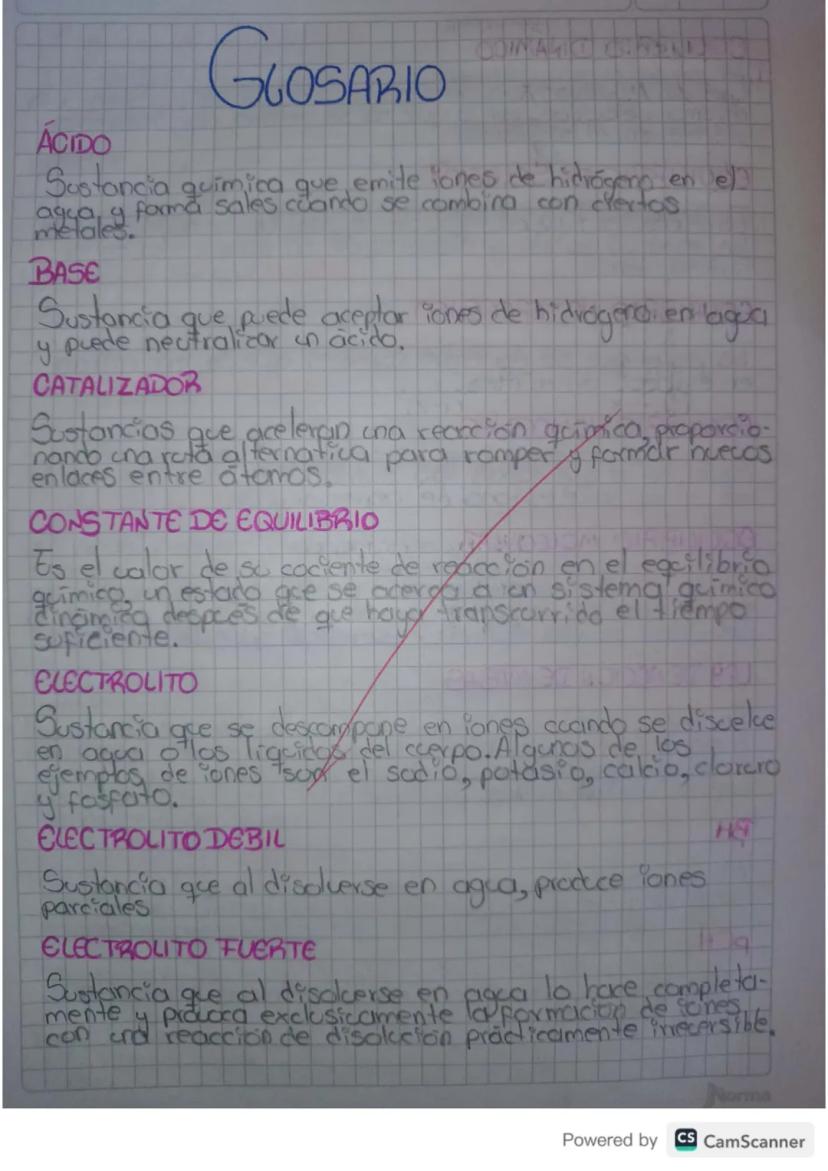 GLOSARIO
ÁCIDO
Sustancia química que emite iones de hidrógeno en el
agua, y forma sales cuando se combina con ciertos
metales.
BASE
Sustancia que puede aceptar iones de hidrógeno en agua
y puede neutralizar un ácido.
CATALIZADOR
Sustancias que aceleran una reacción química, proporcio-
nando una ruta alternativa para romper y formar nuevos
enlaces entre átomos.
CONSTANTE DE EQUILIBRIO
Es el valor de su cociente de reacción en el equilibrio
químico, un estado que se acerca a un sistema químico
dinámico después de que haya transcurrido el tiempo
suficiente.
ELECTROLITO
Sustancia que se descompone en iones cuando se disuelve
en agua o los líquidos del cuerpo. Algunos de los
ejemplos de iones son el sodio, potasio, calcio, cloruro
y fosfato.
ELECTROLITO DEBIL
Sustancia que al disolverse en agua, produce iones
parciales
ELECTROLITO FUERTE
Sustancia que al disolverse en agua lo hace completa-
mente y provoca exclusivamente la formación de iones
con una reacción de disolución prácticamente irreversible.
Norma
Powered by CS CamScanner